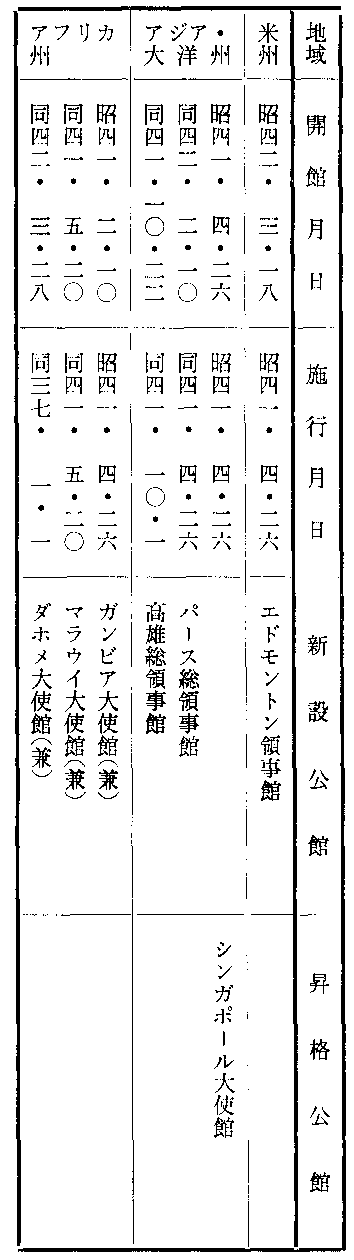 地域 開館月日 施行月日 新設公館 昇格公館
米州 昭四二・三・一八 昭四一・四・二六 エドモントン領事館
アジア・大洋州 昭四一・四・二六 昭四一・四・二六 シンガポール大使館
同四二・二・一〇 同四一・四・二六 パース総領事館
同四一・一〇・二二 同四一・一〇・一 高雄総領事館
アフリカ州 昭四一・二・一〇 昭四一・四・二六 ガンビア大使館(兼)
同四一・五・二〇 同四一・五・二〇 マラウイ大使館(兼)
同四二・三・二八 同三七・一・一 ダホメ大使館(兼)